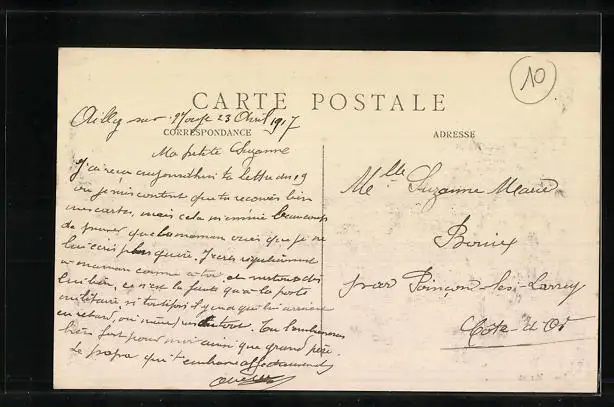 10
CARTE POSTALE
Ailly sur Noye 23 Avril 1917
CORRESPONDANCE
ADRESSE
Ma petite Suzanne
J'ai reçu aujourdhui ta lettre du 19
ou je suis content que tu recoives bien
mes cartes, mais cela m'ennuie beaucoup
de penser que ta maman crois que je ne
lui écris plus guère. J'écris régulièrement
a maman comme a toi, et
bien, ce n'est la faute qu'a la poste
militaire, si tu
en retard, ou même pas du tout. Tu l'embrasseras
bien fort pour moi ainsi que grand père.
Le papa qui t'embrasse affectueusement
Melle Suzanne
par Poinçon les Larrey
Côte d'Or